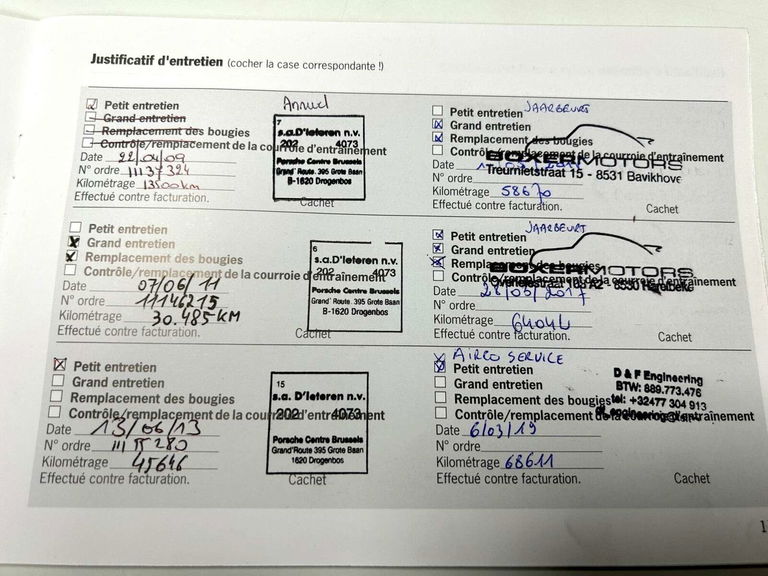 Justificatif d'entretien (cocher la case correspondante !)
Petit entretien
Annuel
Grand entretien
Remplacement des bougies
Contrôle/remplacement de la courroie d'entraînement
Date 22/04/09
N° ordre 11137324
Kilométrage 13500km
Effectué contre facturation.
Cachet
7
s.a.D'Ieteren n.v.
202 4073
Porsche Centre Brussels
Grand' Route. 395 Grote Baan
B-1620 Drogenbos
Petit entretien
Grand entretien
Remplacement des bougies
Contrôle/remplacement de la courroie d'entraînement
Date 07/06/11
N° ordre 11146215
Kilométrage 30.485 KM
Effectué contre facturation.
Cachet
6
s.a.D'Ieteren n.v.
202 4073
Porsche Centre Brussels
Grand' Route. 395 Grote Baan
B-1620 Drogenbos
Petit entretien
Grand entretien
Remplacement des bougies
Contrôle/remplacement de la courroie d'entraînement
Date 13/06/13
N° ordre
Kilométrage 45646
Effectué contre facturation.
Cachet
15
s.a. D'Ieteren n.v.
202 4073
Porsche Centre Brussels
Grand'Route 395 Grote Baan
1620 Drogenbos
Petit entretien
JAARBEURT
Grand entretien
Remplacement des bougies
Contrôle/remplacement de la courroie d'entraînement
BOXERMOTORS
Treurnietstraat 15 - 8531 Bavikhove
Date
N° ordre
Kilométrage 58670
Effectué contre facturation.
Cachet
JAARBEURT
Petit entretien
Grand entretien
Remplacement des bougies
BOXERMOTORS
Contrôle/remplacement de la courroie d'entraînement
Date 28/05/2017
N° ordre
Kilométrage 64044
Effectué contre facturation.
Cachet
AIRCO SERVICE
Petit entretien
Grand entretien
Remplacement des bougies
Contrôle/remplacement de la courroie d'entraînement
D & F Engineering
BTW: 889.773.476
tel: +32477 304 913
Date 6/03/19
N° ordre
Kilométrage 68611
Effectué contre facturation.
Cachet